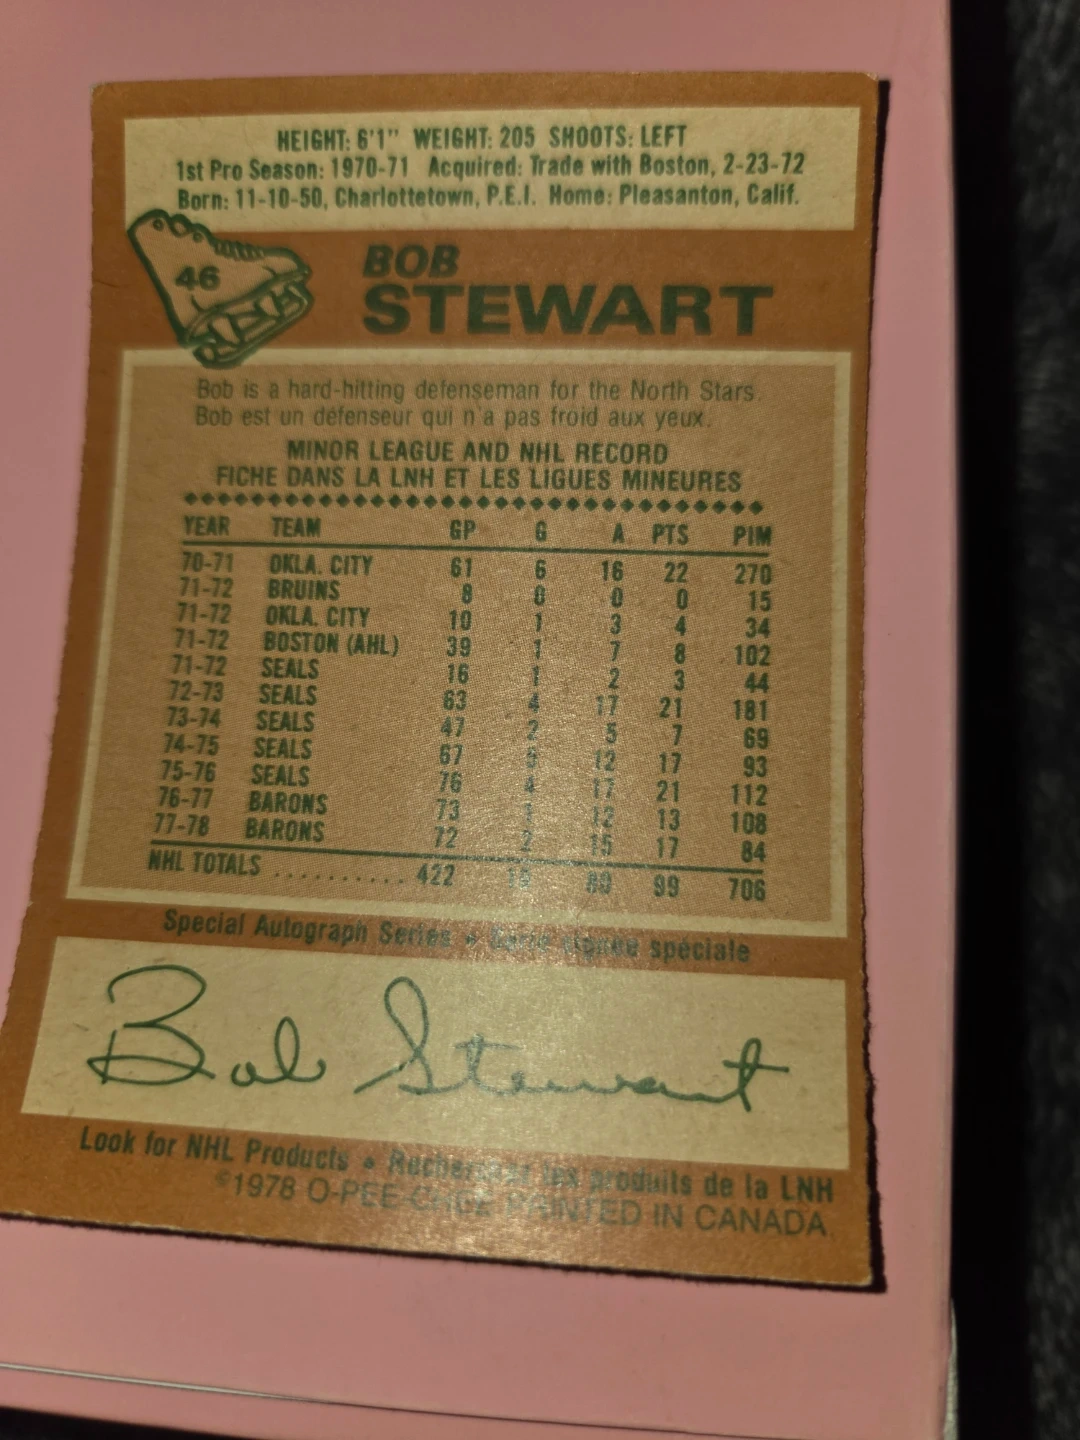 HEIGHT: 6'1" WEIGHT: 205 SHOOTS: LEFT
1st Pro Season: 1970-71 Acquired: Trade with Boston, 2-23-72
Born: 11-10-50, Charlottetown, P.E.I. Home: Pleasanton, Calif.
46
BOB
STEWART
Bob is a hard-hitting defenseman for the North Stars.
Bob est un défenseur qui n'a pas froid aux yeux.
MINOR LEAGUE AND NHL RECORD
FICHE DANS LA LNH ET LES LIGUES MINEURES
YEAR TEAM GP G A PTS PIM
70-71 OKLA. CITY 61 6 16 22 270
71-72 BRUINS 8 0 0 0 15
71-72 OKLA. CITY 10 1 3 4 34
71-72 BOSTON (AHL) 39 1 7 8 102
71-72 SEALS 16 1 2 3 44
72-73 SEALS 63 4 17 21 181
73-74 SEALS 47 2 5 7 69
74-75 SEALS 67 5 12 17 93
75-76 SEALS 76 4 17 21 112
76-77 BARONS 73 1 12 13 108
77-78 BARONS 72 2 15 17 84
NHL TOTALS .......... 422 19 80 99 706
Special Autograph Series • Série signée spéciale
Bob Stewart
Look for NHL Products • Recherchez les produits de la LNH
©1978 O-PEE-CHEE PRINTED IN CANADA